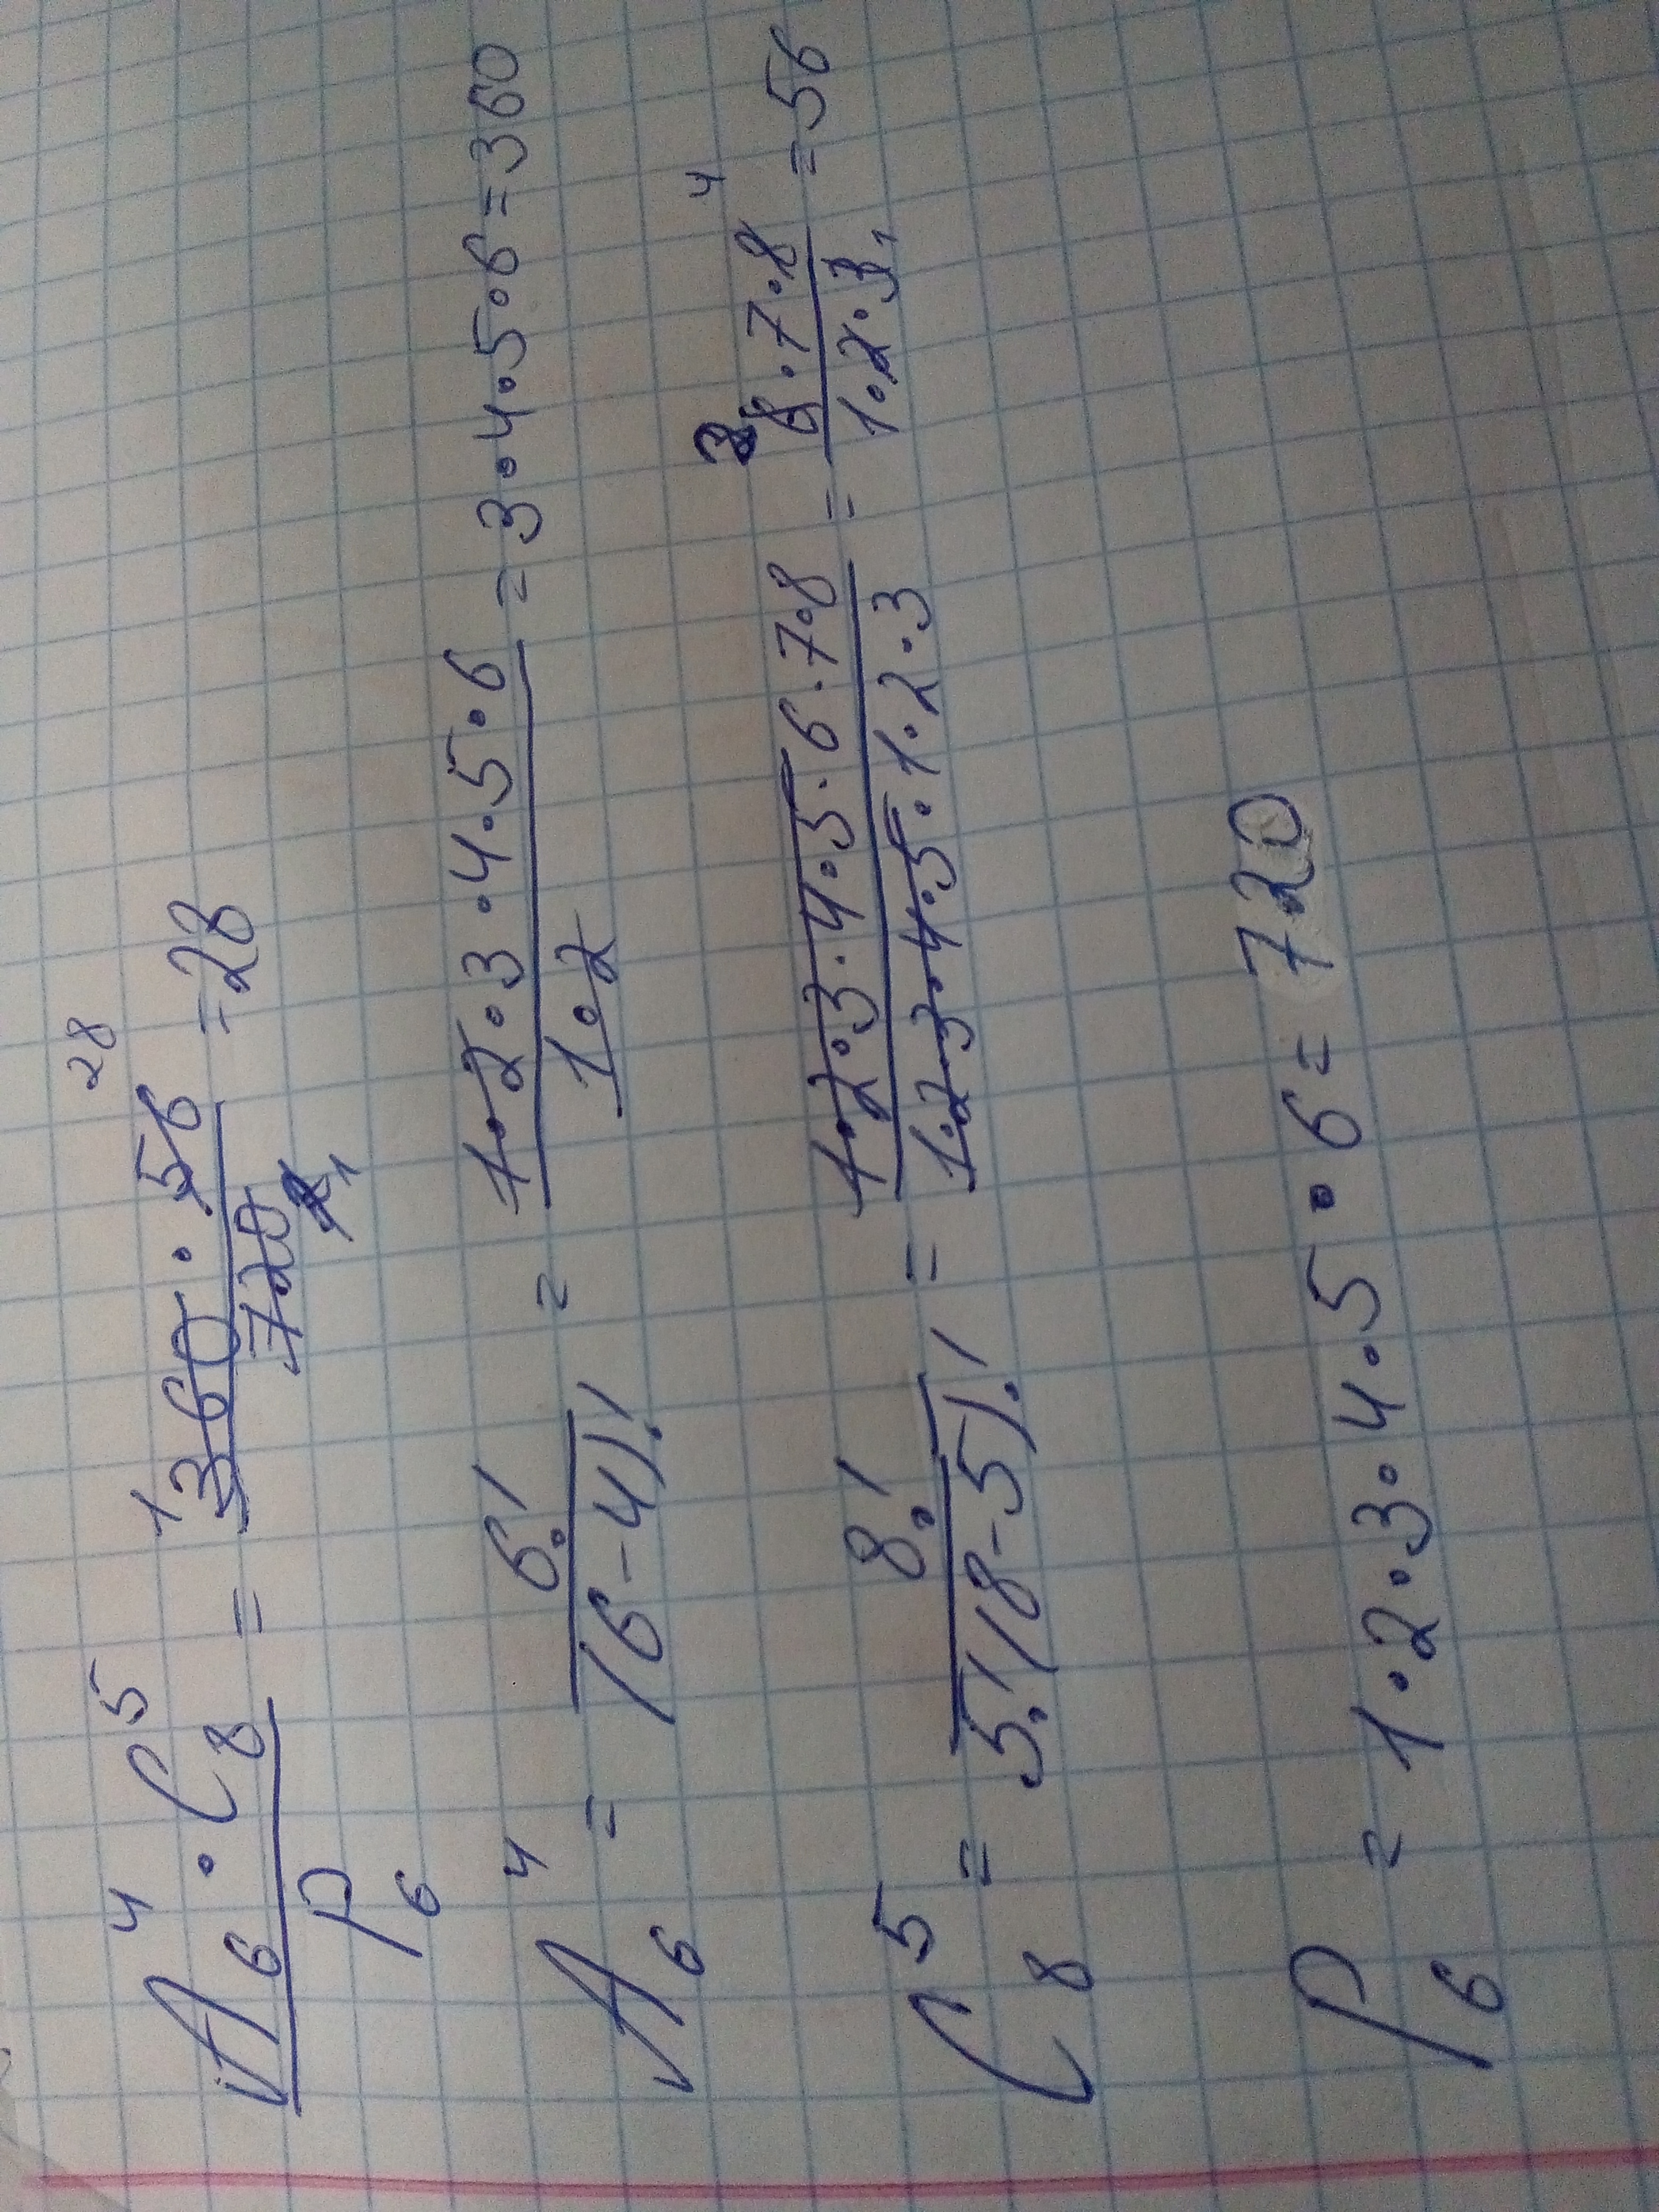 A₆⁴ · C₈⁵ / P₆ = 360 · 56 / 720 = 28
1 28 2 1
A₆⁴ = 6! / (6-4)! = 1·2·3·4·5·6 / 1·2 = 3·4·5·6=360
C₈⁵ = 8! / 5!(8-5)! = 1·2·3·4·5·6·7·8 / 1·2·3·4·5·1·2·3 = 6·7·8 / 1·2·3 = 56
4 1
P₆ = 1·2·3·4·5·6= 720